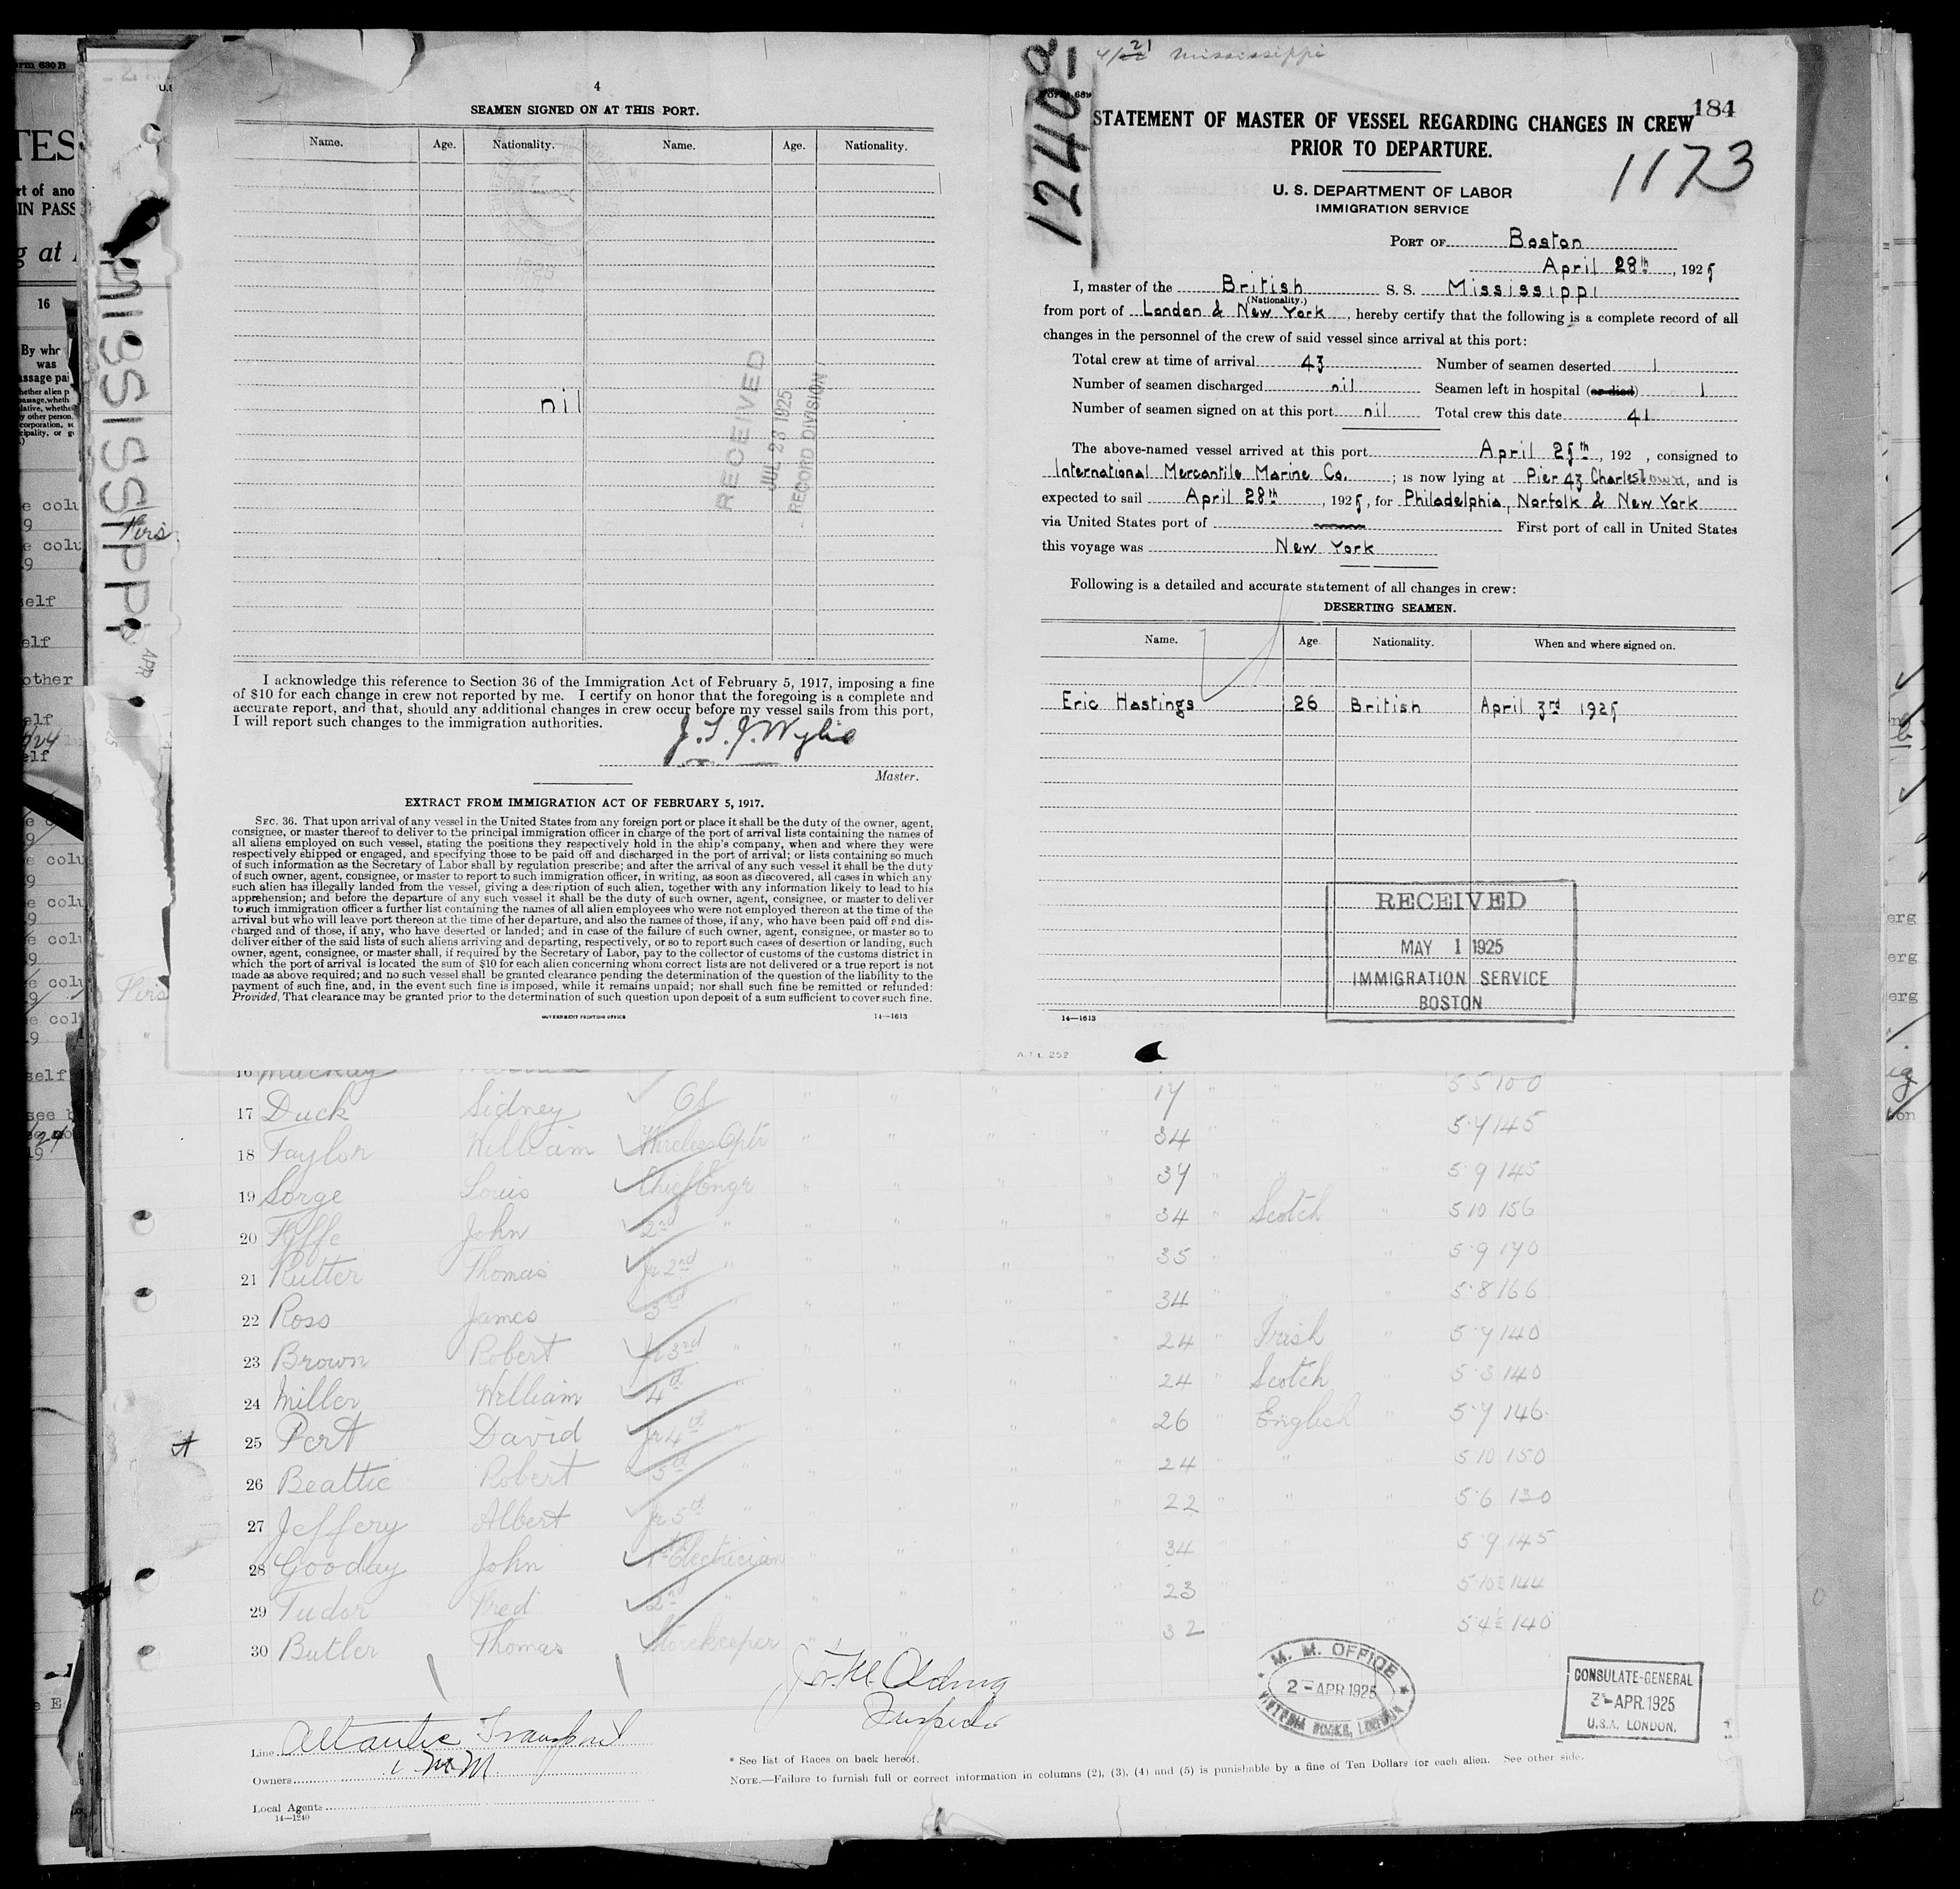 4
SEAMEN SIGNED ON AT THIS PORT.
Name. Age. Nationality. Name. Age. Nationality.
nil
RECEIVED
JUL 28 1925
RECORD DIVISION
I acknowledge this reference to Section 36 of the Immigration Act of February 5, 1917, imposing a fine
of $10 for each change in crew not reported by me. I certify on honor that the foregoing is a complete and
accurate report, and that, should any additional changes in crew occur before my vessel sails from this port,
I will report such changes to the immigration authorities.
J. T. J. Wylie
Master.
EXTRACT FROM IMMIGRATION ACT OF FEBRUARY 5, 1917.
SEC. 36. That upon arrival of any vessel in the United States from any foreign port or place it shall be the duty of the owner, agent,
consignee, or master thereof to deliver to the principal immigration officer in charge of the port of arrival lists containing the names of
all aliens employed on such vessel, stating the positions they respectively hold in the ship's company, when and where they were
respectively shipped or engaged, and specifying those to be paid off and discharged in the port of arrival; or lists containing so much
of such information as the Secretary of Labor shall by regulation prescribe; and after the arrival of any such vessel it shall be the duty
of such owner, agent, consignee, or master to report to such immigration officer, in writing, as soon as discovered, all cases in which any
such alien has illegally landed from the vessel, giving a description of such alien, together with any information likely to lead to his
apprehension; and before the departure of any such vessel it shall be the duty of such owner, agent, consignee, or master to deliver
to such immigration officer a further list containing the names of all alien employees who were not employed thereon at the time of the
arrival but who will leave port thereon at the time of her departure, and also the names of those, if any, who have been paid off and dis-
charged and of those, if any, who have deserted or landed; and in case of the failure of such owner, agent, consignee, or master so to
deliver either of the said lists of such aliens arriving and departing, respectively, or so to report such cases of desertion or landing, such
owner, agent, consignee, or master shall, if required by the Secretary of Labor, pay to the collector of customs of the customs district in
which the port of arrival is located the sum of $10 for each alien concerning whom correct lists are not delivered or a true report is not
made as above required; and no such vessel shall be granted clearance pending the determination of the question of the liability to the
payment of such fine, and, in the event such fine is imposed, while it remains unpaid; nor shall such fine be remitted or refunded:
Provided, That clearance may be granted prior to the determination of such question upon deposit of a sum sufficient to cover such fine.
GOVERNMENT PRINTING OFFICE 14—1613
MISSISSIPPI
4/21 Mississippi
12402-1
184
STATEMENT OF MASTER OF VESSEL REGARDING CHANGES IN CREW
PRIOR TO DEPARTURE.
1173
U. S. DEPARTMENT OF LABOR
IMMIGRATION SERVICE
PORT OF Boston
April 28th, 1925
I, master of the British S. S. Mississippi
(Nationality.)
from port of London & New York, hereby certify that the following is a complete record of all
changes in the personnel of the crew of said vessel since arrival at this port:
Total crew at time of arrival 43 Number of seamen deserted 1
Number of seamen discharged nil Seamen left in hospital (or died) 1
Number of seamen signed on at this port nil Total crew this date 41
The above-named vessel arrived at this port April 25th, 192 , consigned to
International Mercantile Marine Co. ; is now lying at Pier 43 Charlestown, and is
expected to sail April 28th, 1925, for Philadelphia, Norfolk & New York
via United States port of First port of call in United States
this voyage was New York
Following is a detailed and accurate statement of all changes in crew:
DESERTING SEAMEN.
Name. Age. Nationality. When and where signed on.
Eric Hastings 26 British April 3rd 1925
RECEIVED
MAY 1 1925
IMMIGRATION SERVICE
BOSTON
14—1613
16 Mackay 17 " 5 5 100
17 Duck Sidney 34 " 5 7 145
18 Taylor William Wireless Optr 37 " 5 9 145
19 Sorge Louis Chief Engr 34 " Scotch 5 10 156
20 Fyffe John 2nd " 35 " 5 9 170
21 Rutter Thomas Jr 2nd " 34 5 8 166
22 Ross James 3rd " 24 " Irish 5 7 140
23 Brown Robert Jr 3rd " 24 " Scotch 5 3 140
24 Miller William 4th " 26 " English 5 7 146
25 Port David Jr 4th " 24 " 5 10 150
26 Beattie Robert 5th " 22 " 5 6 130
27 Jeffery Albert Jr 5th " 34 5 9 145
28 Gooday John 1st Electrician 23 5 10½ 144
29 Tudor Fred 2nd " 32 5 4½ 140
30 Butler Thomas Storekeeper
Inspector
M. M. OFFICE
2 - APR 1925
VICTORIA DOCKS, LONDON
CONSULATE-GENERAL
2 - APR. 1925
U.S.A. LONDON.
Line Atlantic Transport
Owners I M M
Local Agents
14—1240
* See list of Races on back hereof.
NOTE.—Failure to furnish full or correct information in columns (2), (3), (4) and (5) is punishable by a fine of Ten Dollars for each alien. See other side.